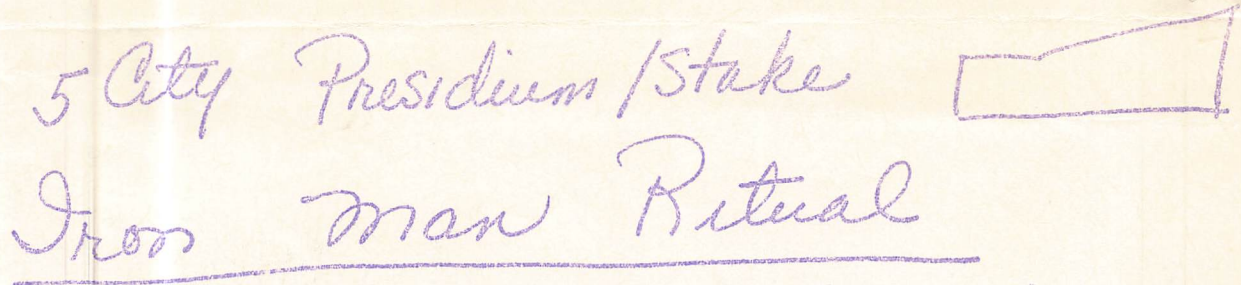 5 City Presidium/Stake
Iron Man Ritual